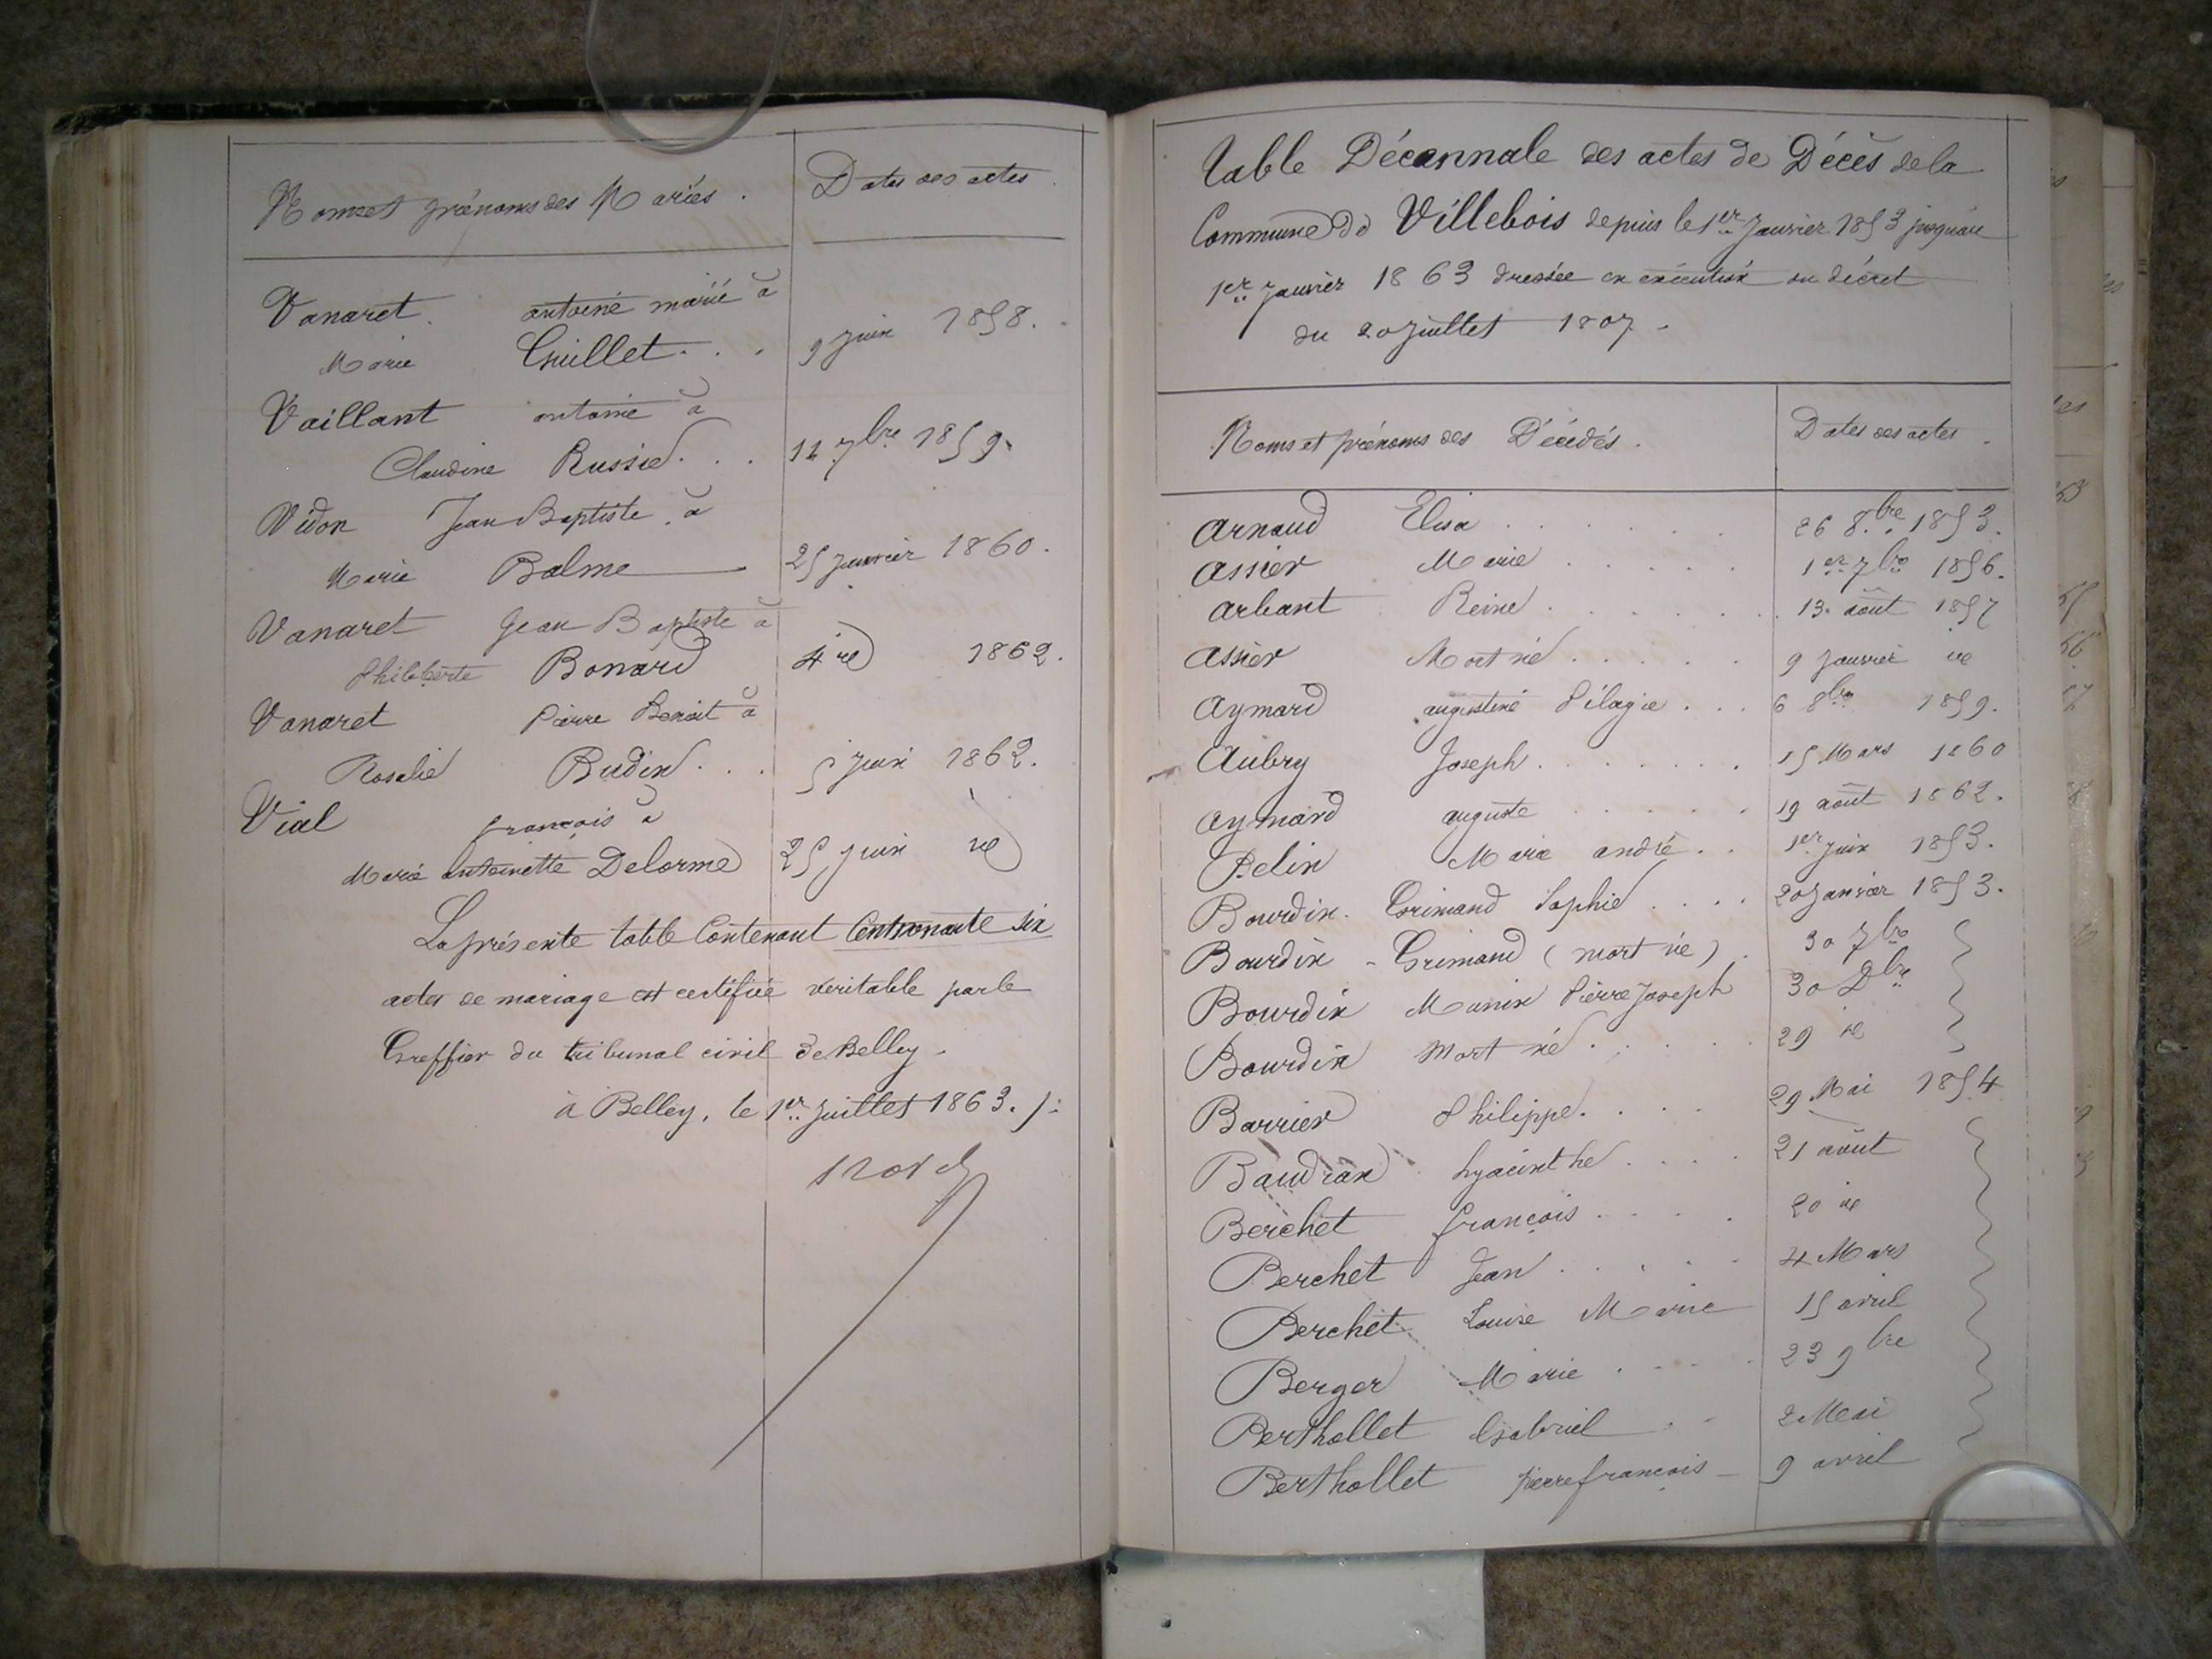 Noms et prénoms des Mariés. Dates des actes.
Vanaret antoine marié à
Marie Guillet . . . 9 Juin 1858.
Vaillant antoine à
Claudine Russie . . . 12 7bre 1859.
Vidon Jean Baptiste à
Marie Balme 25 Janvier 1860.
Vanaret Jean Baptiste à
Philiberte Bonard 4 id 1862.
Vanaret Pierre Benoit à
Rosalie Budin . . . 5 Juin 1862.
Vial françois à
Marie antoinette Delorme 25 Juin id
La présente table Contenant Cent nonante six
actes de mariage est certifiée véritable par le
Greffier du tribunal civil de Belley.
à Belley, le 1er Juillet 1863.
Table Décennale des actes de Décès de la
Commune de Villebois depuis le 1er Janvier 1853 jusqu'au
1er Janvier 1863 dressée en exécution du décret
du 20 Juillet 1807.
Noms et prénoms des Décédés. Dates des actes.
Arnaud Elisa . . . . . . 26 8bre 1853.
Assier Marie . . . . . 1er 7bre 1856.
Arbant Reine . . . . . . 13 août 1857
Assier Mort né . . . . . 9 Janvier id
Aymard augustine Pélagie . . . 6 8bre 1859.
Aubry Joseph . . . . . . . 15 Mars 1860
Aymard auguste . . . . . 19 août 1862.
Belin Marie andré . . 1er Juin 1853.
Bourdin Grimand Sophie . . . . 20 Janvier 1853.
Bourdin - Grimand (mort né) . 30 7bre
Bourdin Munin Pierre Joseph 30 Dbre
Bourdin Mort né . . . . . 29 id
Barrier Philippe . . . . 29 Mai 1854
Baudran hyacinthe . . . . 21 août
Berchet françois . . . . . 20 id
Berchet Jean . . . . . 4 Mars
Berchet Louise Marie 15 avril
Berger Marie . . . . 23 9bre
Berthollet Gabriel . . 2 Mai
Berthollet pierre françois - 9 avril